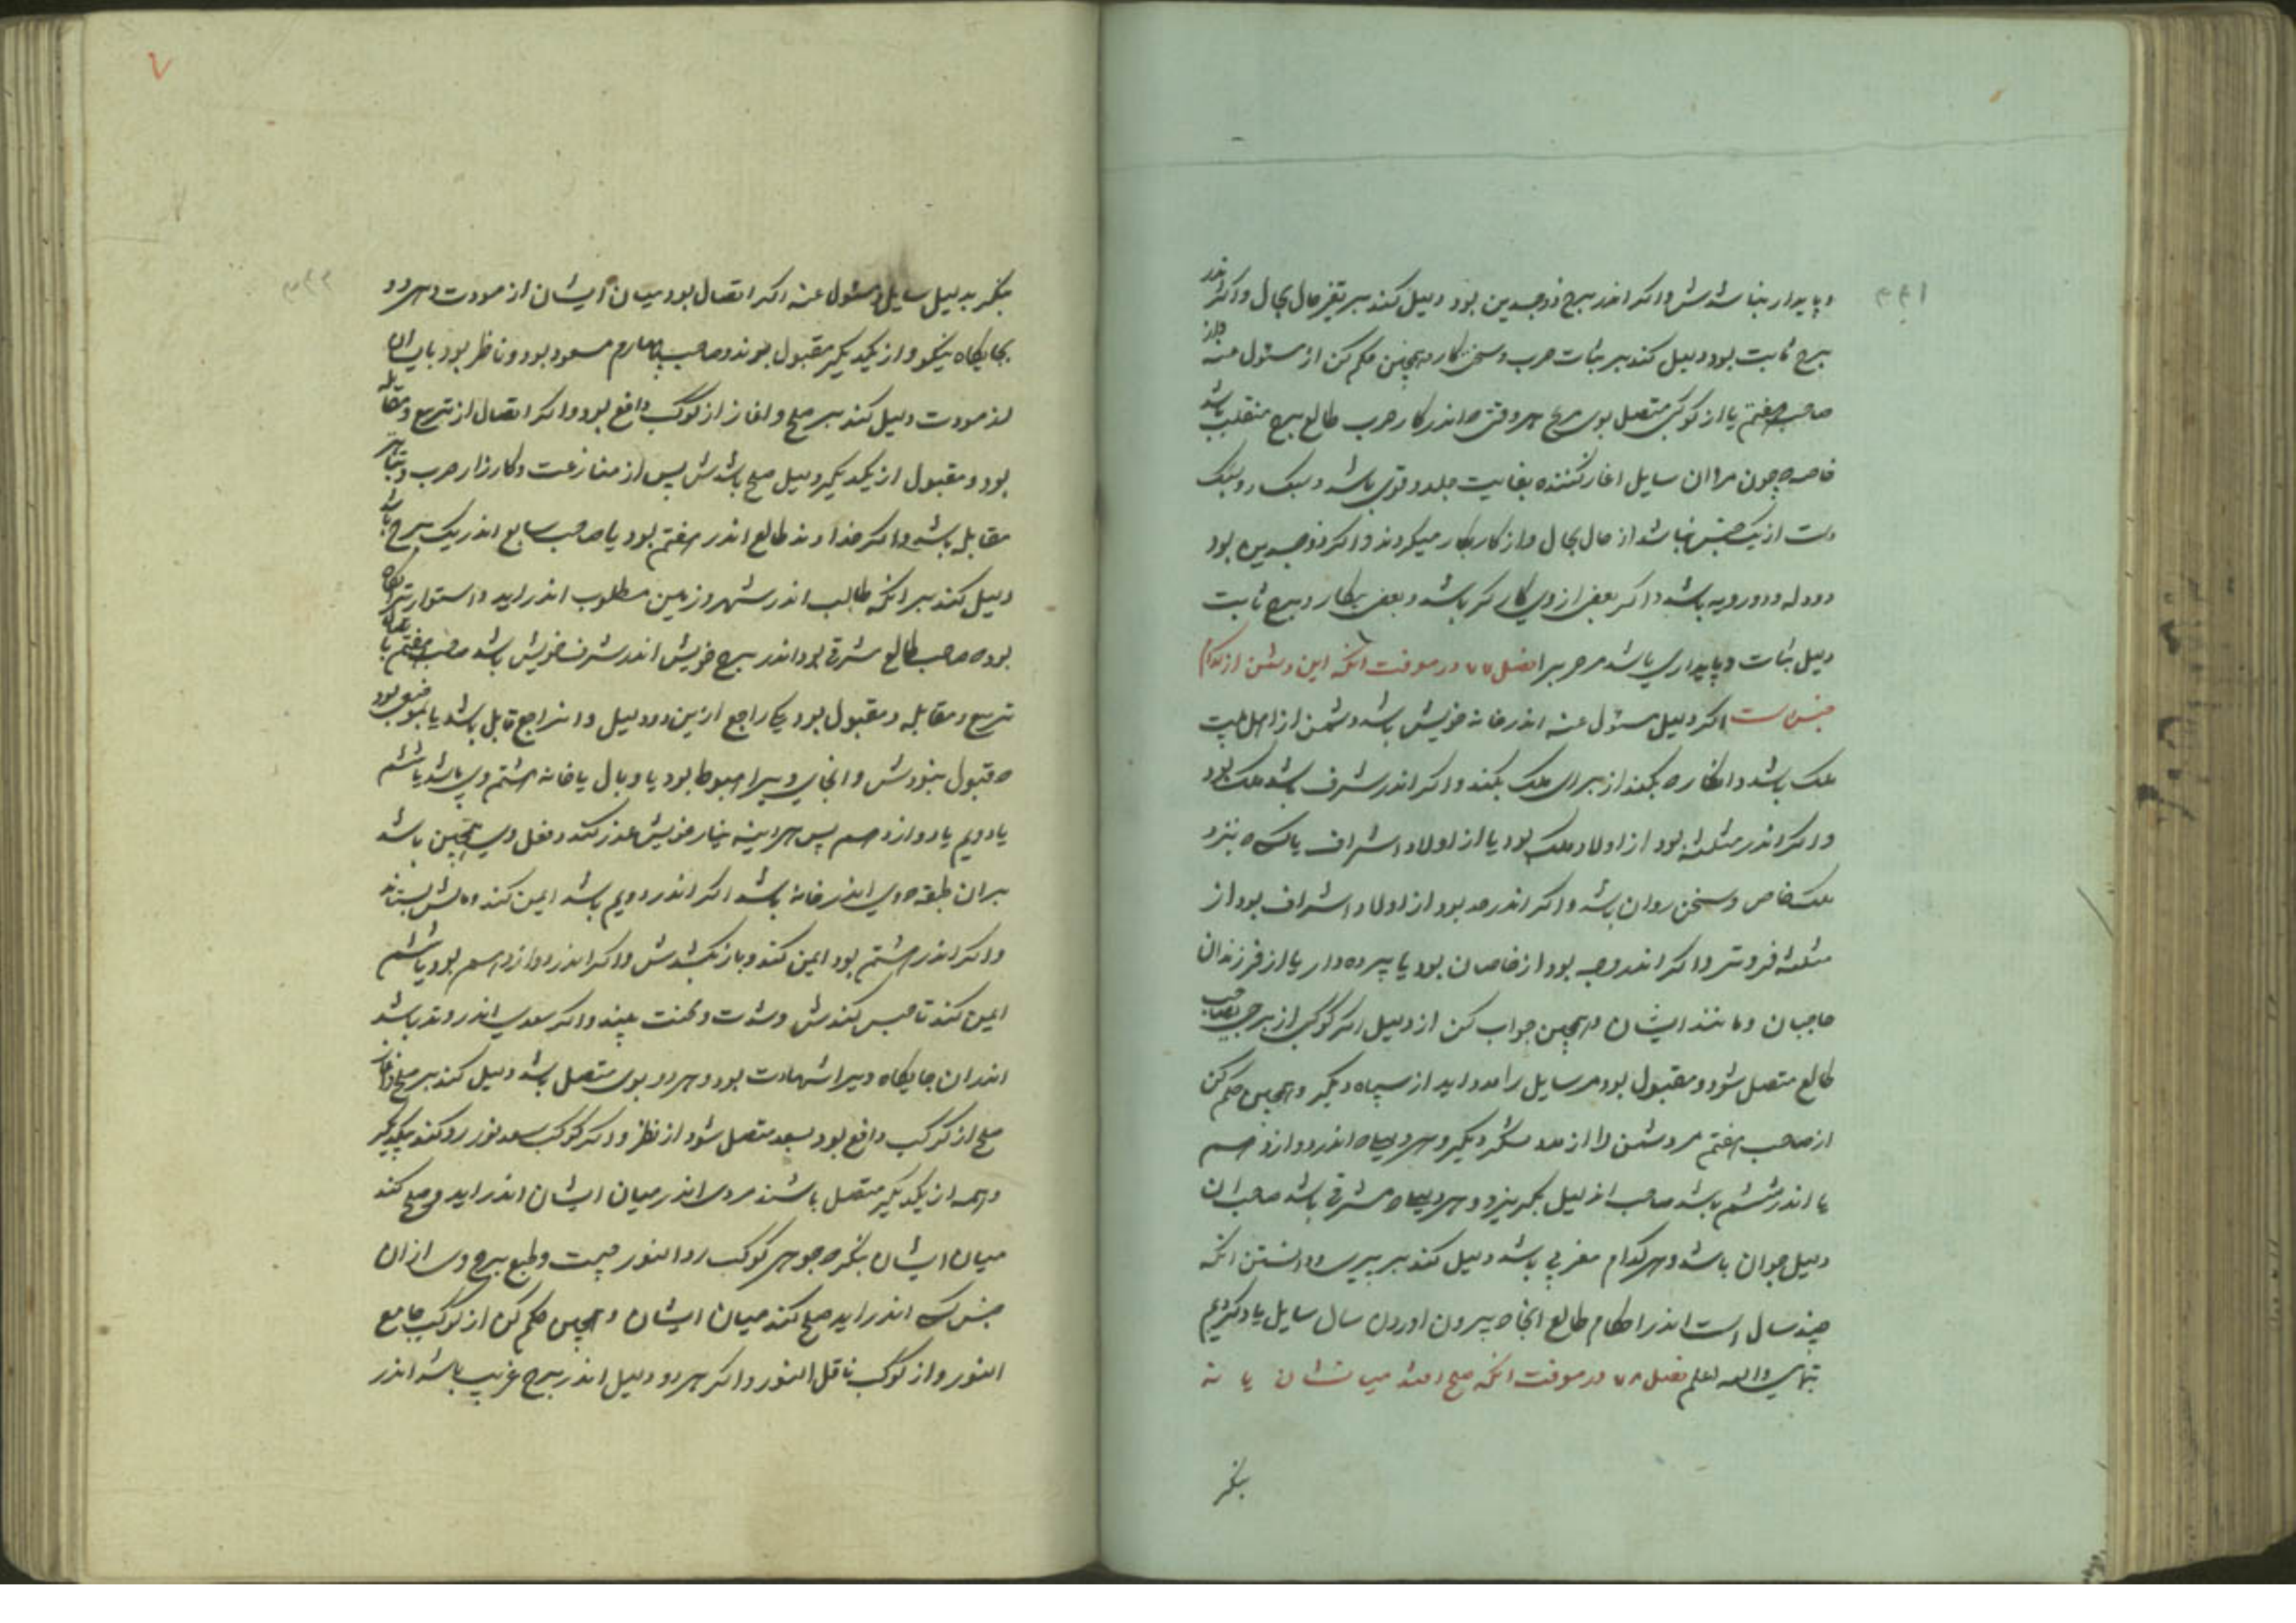 و پایدار نباشدش و اکر اندر برج ذوجسدین بود دلیل کند بر تغیر حال بحال و اکر اندر
برج ثابت بود دلیل کند بر ثبات حرب و سختی کار و همچنین حکم کن از مسئول عنه و از
صاحب هفتم یا از کوکبی متصل بوی مریخ هر وقتی اندر کار حرب طالع برج منقلب باشد
خاصه چون سایل اغاز کننده بغایت جلد و قوی باشد و سبک و سبک
است از یک جنس نباشد از حال بحال و از کار بکار میکردند و اکر ذوجسدین بود
دو دله و دو رویه باشد و اکر بعضی از وی کار کر باشد و بعضی بیکار و برج ثابت
دلیل ثبات و پایداری باشد مر حرب را فصل ۷۷ در معرفت انکه این دشمن از کدام
جنس است اکر دلیل مسئول عنه اندر خانه خویش باشد دشمن از اهل بیت
ملک باشد و انکار بکند از برای ملک بکند و اکر اندر شرف باشد ملک بود
و اکر اندر مثلثه بود از اولاد ملک بود یا از اولاد اشراف یا کسی نزد
ملک خاص و سخن روان باشد و اکر اندر حد بود از اولاد اشراف بود از
مثلثه فروتر و اکر اندر وجه بود از خاصان بود یا پرده دار یا از فرزندان
حاجبان و مانند ایشان و همچنین جواب کن از دلیل اکر کوکبی از برج صاحب
طالع متصل شود و مقبول بود مر سایل را مدد اید از سپاه دیکر و همچنین حکم کن
از صاحب هفتم مر دشمن را از مدد لشکر دیکر و هر دلیل اندر دوازدهم
یا اندر ششم باشد صاحب ان دلیل بگریزد و هر دلیل مشرقی باشد صاحب ان
دلیل جوان باشد و هر کدام مغربی باشد دلیل کند بر پیری و دانستن انکه
چند سال است اندر احکام طالع انجا بیرون اوردن سال سایل یاد کردیم
بتمامی والله اعلم فصل ۷۸ در معرفت انکه صلح افتد میانشان یا نه
بنکر
بنکر بدلیل سایل و مسئول عنه اکر اتصال بود میان ایشان از مودت و هر دو
بجایکاه نیکو و از یکدیکر مقبول بوند و صاحب چهارم مسعود بود و ناظر بود بایشان
از مودت دلیل کند بر صلح و اغاز از کوکب دافع بود و اکر اتصال از تربیع و مقابله
بود و مقبول از یکدیکر دلیل صلح باشدش پس از منازعت و کارزار حرب و
مقابله باشد و اکر خداوند طالع اندر هفتم بود یا صاحب سابع اندر یک برج باشد
دلیل کند بر انکه طالب اندر شهر و زمین مطلوب اندر اید و استوارتر انکاه
بود صاحب طالع مشرقی بود اندر برج خویش اندر شرف خویش باشد و صاحب هفتم با
تربیع و مقابله و مقبول بود یکی راجع از این دو دلیل و ان راجع قابل باشد یا موضعی بود
قبول نبودش و انجای ویرا هبوط بود یا وبال یا خانه هشتم وی باشد یا ششم
یا دویم یا دوازدهم پس هر اینه خویش عذر کند و فعل وی همچنین باشد
بران طبقه وی اندر خانه باشد اکر اندر دویم باشد ایمن کند و مالش بستاند
و اکر اندر هشتم بود ایمن کند و باز بکشدش و اکر اندر دوازدهم بود یا ششم
ایمن کند تا حبس کندش و شدت و محنت بیند و اکر سعدی اندر وتد باشد
اندر ان جایکاه ویرا شهادت بود و هر دو بوی متصل باشد دلیل کند بر صلح و اغاز
صلح از کوکب دافع بود بسعد متصل شود از نظر و اکر کوکب سعد نور رد کند بیکدیکر
و همه از یکدیکر متصل باشند مردی اندر میان ایشان اندر اید و صلح کند
میان ایشان بنکر جوهر کوکب رد النور چیست و طبع برج وی از ان
جنس کسی اندر اید صلح کند میان ایشان و همچنین حکم کن از کوکب جامع
النور و از کوکب ناقل النور و اکر هر دو دلیل اندر برج غریب باشد اندر